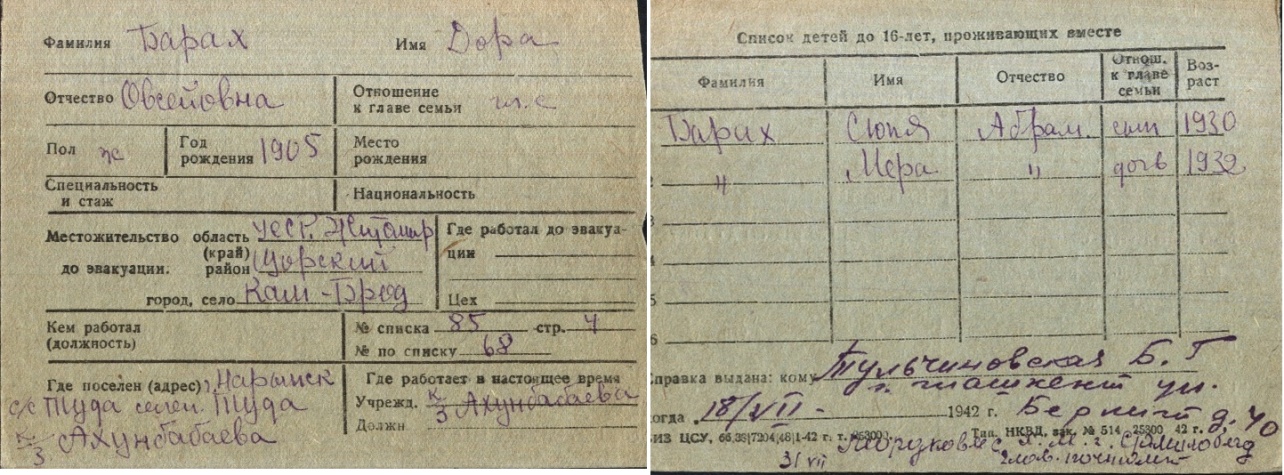 Фамилия Барах Имя Дора
Отчество Овсейовна
Отношение к главе семьи гл. с
Пол ж
Год рождения 1905
Место рождения
Специальность и стаж
Национальность
Местожительство до эвакуации. область (край) УССР. Житомир
район
город, село Кам-Брод
Где работал до эвакуации
Цех
Кем работал (должность)
№ списка 85 стр. 4
№ по списку 68
Где поселен (адрес) Нарынск
с/с Туда селен. Туда
к/з Ахунбабаева
Где работает в настоящее время
Учрежд. к/з Ахунбабаева
Должн
Список детей до 16-лет, проживающих вместе
Фамилия Имя Отчество Отнош. к главе семьи Возраст
Барах Сюня Абрам. сын 1930
2 " Мера " дочь 1932
3
4
5
6
Справка выдана: кому Тульчиновская Б. Г
г. Ташкент ул.
Когда 18/VII - 1942 г. д. 40
ИЗ ЦСУ, Тип. НКВД, зак. № 514 25300 42 г.
31 VII